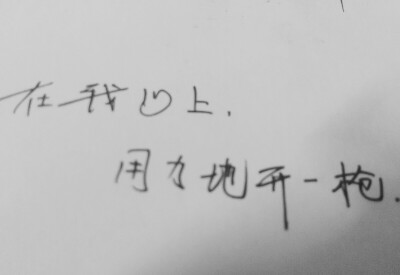 在我心上.
用力地开一枪.